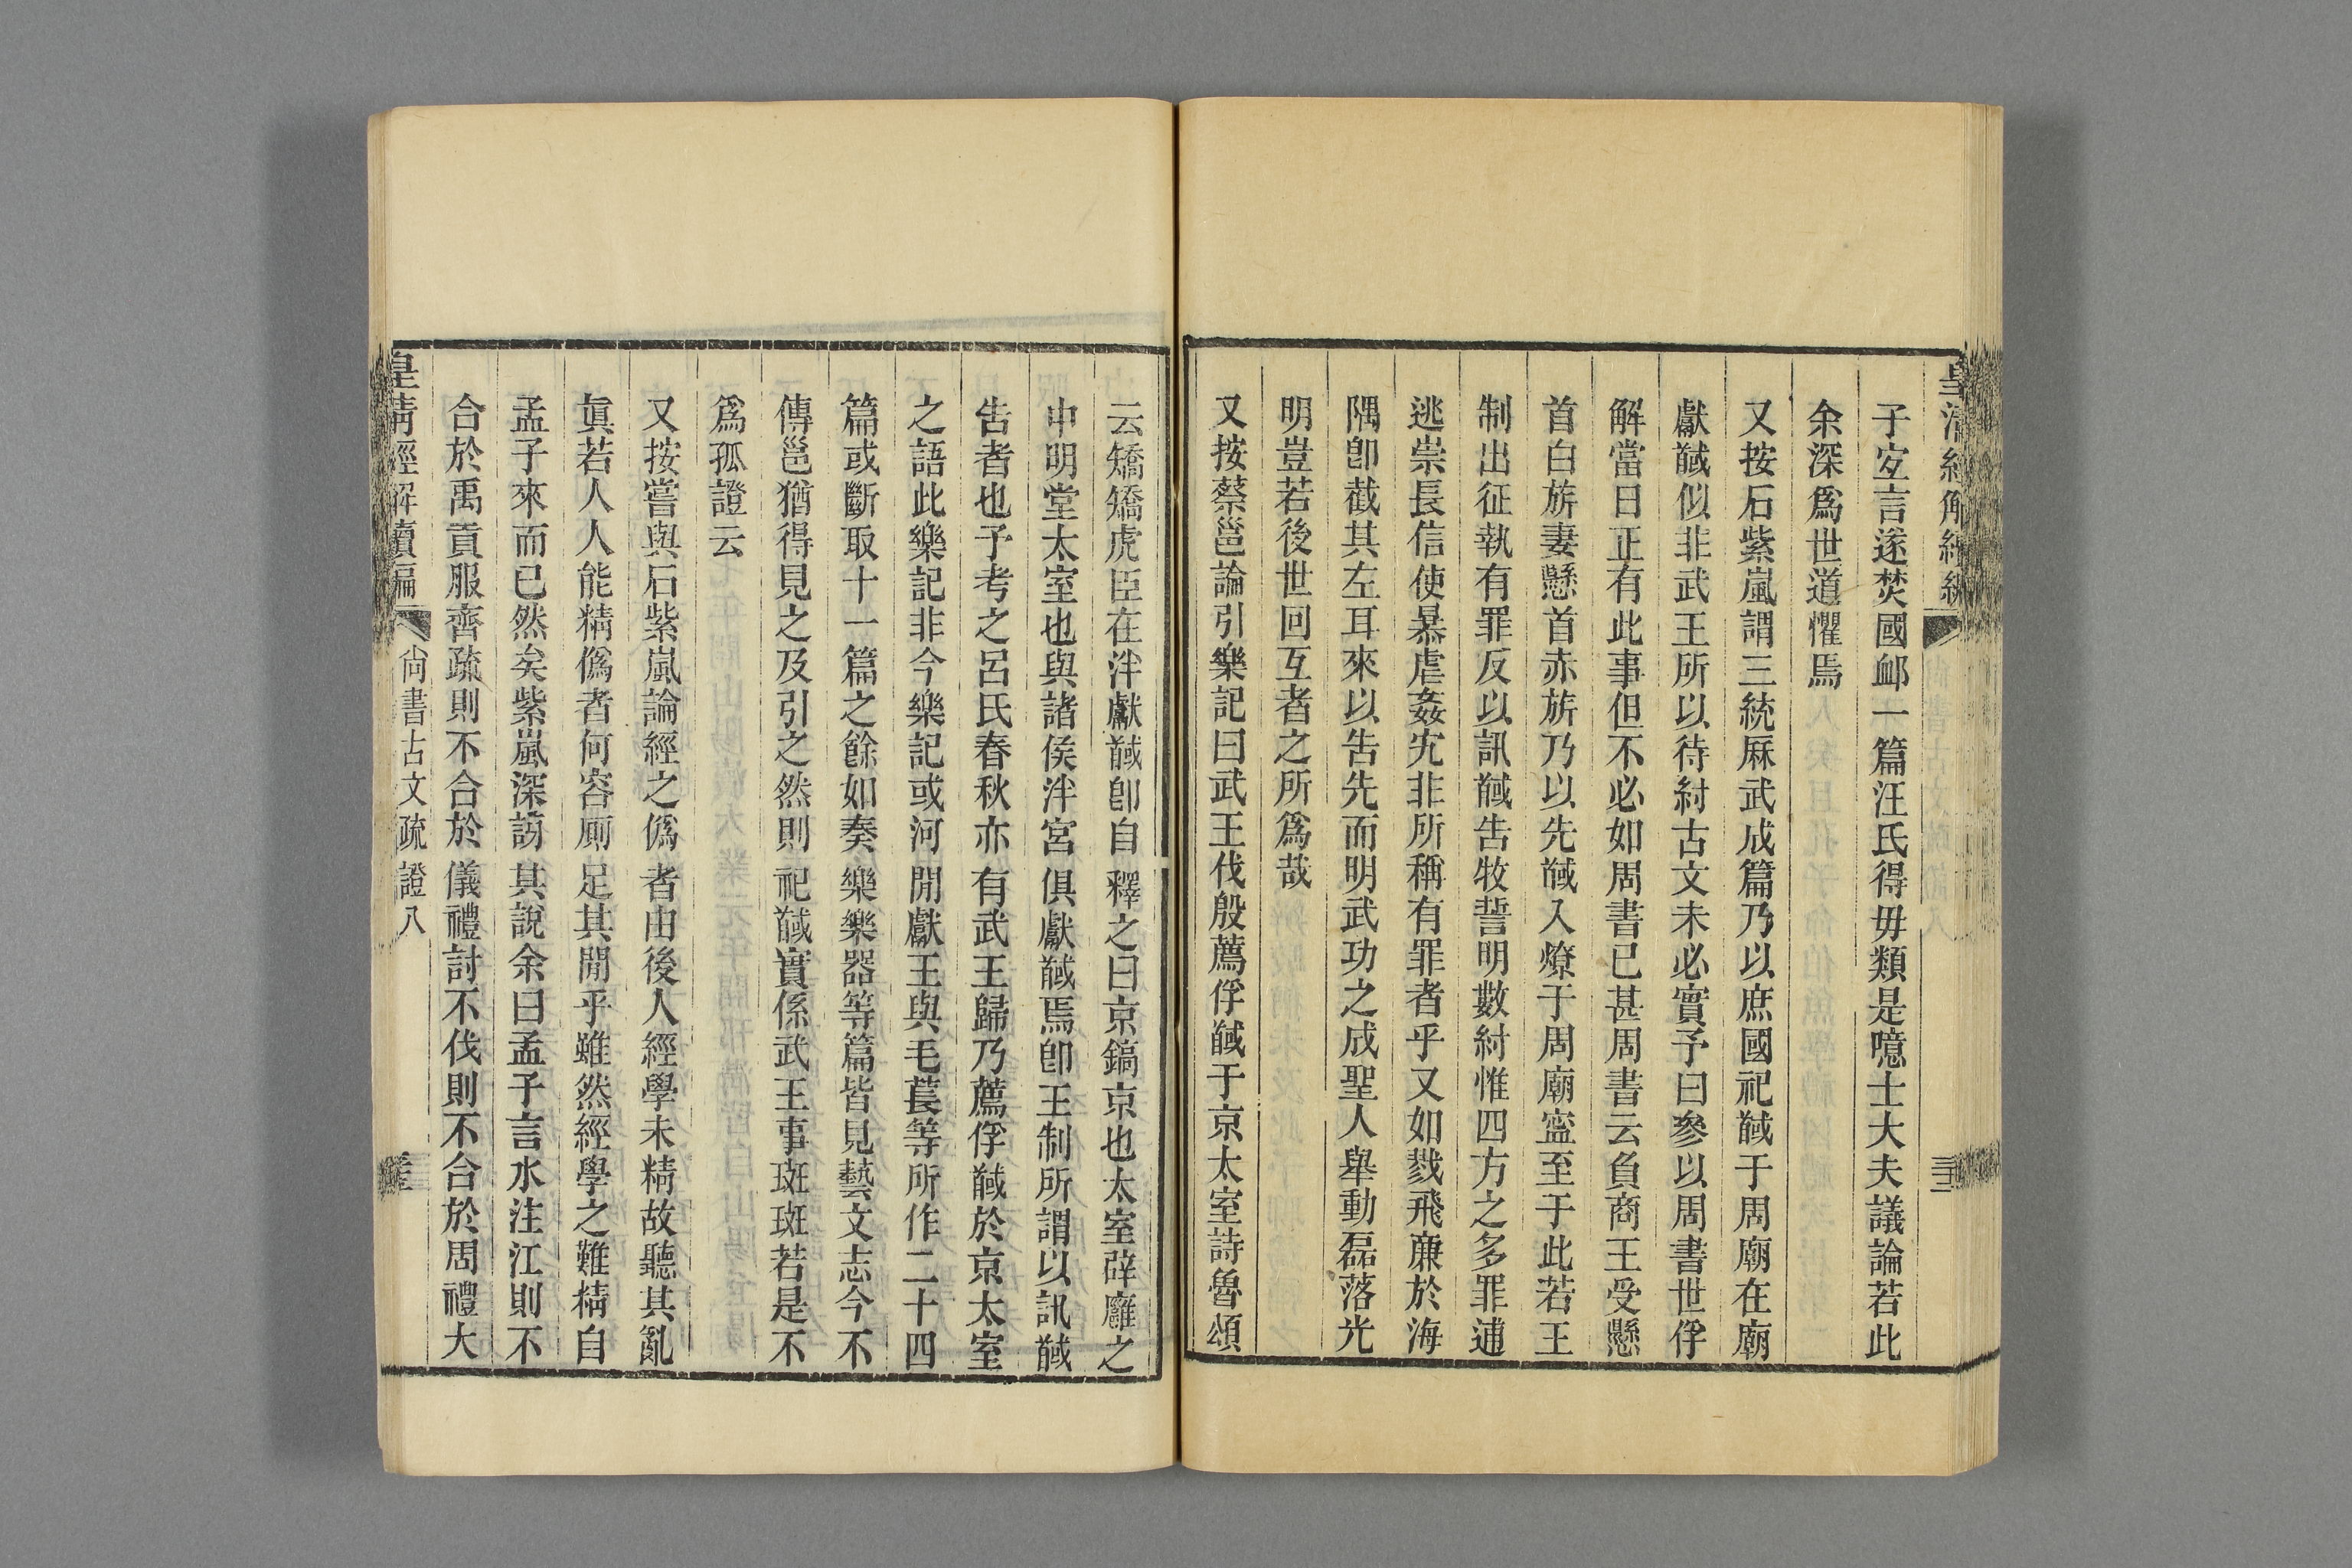 子宐言遂焚國衈一篇汪氏得毋類是噫士大夫議論若此
余深爲世道懼焉
又按石紫嵐謂三統厤武成篇乃以庶國祀馘于周廟在廟
獻馘似非武王所以待紂古文未必實予曰參以周書世俘
解當日正有此事但不必如周書已甚周書云負商王受懸
首白旂妻懸首赤旂乃以先馘入燎于周廟寍至于此若王
制出征執有罪反以訊馘告牧誓明數紂惟四方之多罪逋
逃崇長信使暴虐姦宄非所稱有罪者乎又如戮飛廉於海
隅卽截其左耳來以告先而明武功之成聖人舉動磊落光
明豈若後世回互者之所爲哉
又按蔡邕論引樂記曰武王伐殷薦俘馘于京太室詩魯頌
云矯矯虎臣在泮獻馘卽自釋之曰京鎬京也太室辟廱之
中明堂太室也與諸侯泮宮俱獻馘焉卽王制所謂以訊馘
告者也予考之呂氏春秋亦有武王歸乃薦俘馘於京太室
之語此樂記非今樂記或河閒獻王與毛萇等所作二十四
篇或斷取十一篇之餘如奏樂樂器等篇皆見藝文志今不
傳邕猶得見之及引之然則祀馘實係武王事斑斑若是不
爲孤證云
又按嘗與石紫嵐論經之僞者由後人經學未精故聽其亂
眞若人人能精僞者何容厠足其閒乎雖然經學之難精自
孟子來而已然矣紫嵐深訪其說余曰孟子言水注江則不
合於禹貢服齊疏則不合於儀禮討不伐則不合於周禮大
皇清經解續編
尚書古文疏證八